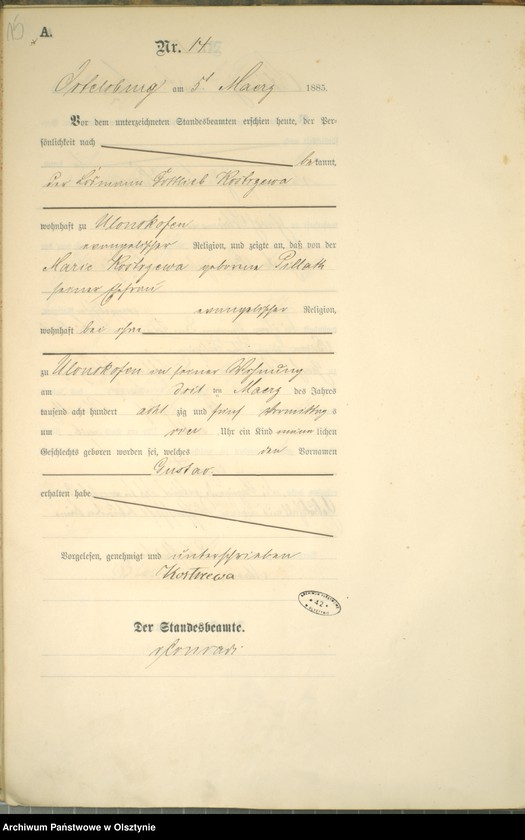 A.
Nr. 14
Ortelsburg am 5. Maerz 1885.
Vor dem unterzeichneten Standesbeamten erschien heute, der Per-
sönlichkeit nach
bekannt,
der Losmann Gottlieb Kostrzewa
wohnhaft zu Ulonskofen
evangelischer Religion, und zeigte an, daß von der
Marie Kostrzewa geborene Pillath
seiner Ehefrau
evangelischer Religion,
wohnhaft bei ihm
zu Ulonskofen in seiner Wohnung
am ten Maerz des Jahres
tausend acht hundert acht zig und fünf Vormittag s
um Uhr ein Kind männ lichen
Geschlechts geboren worden sei, welches den Vornamen
Gustav
erhalten habe
Vorgelesen, genehmigt und unterschrieben
Kostrzewa
42
Der Standesbeamte.
Archiwum Państwowe w Olsztynie